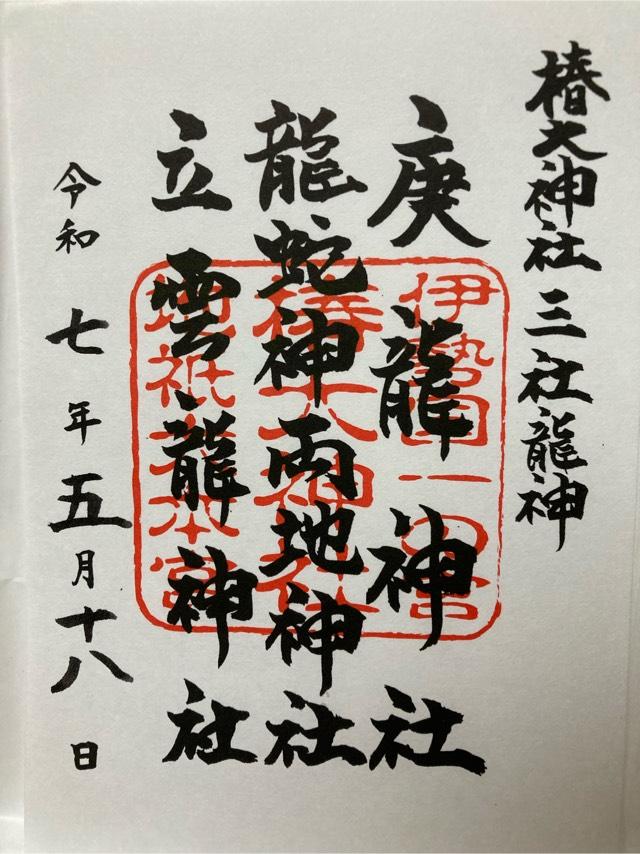 椿大神社 三社龍神
庚龍神社
龍蛇神両地神社
立雲龍神社
令和七年五月十八日
伊勢国一の宮
椿大神社
地祇大本宮